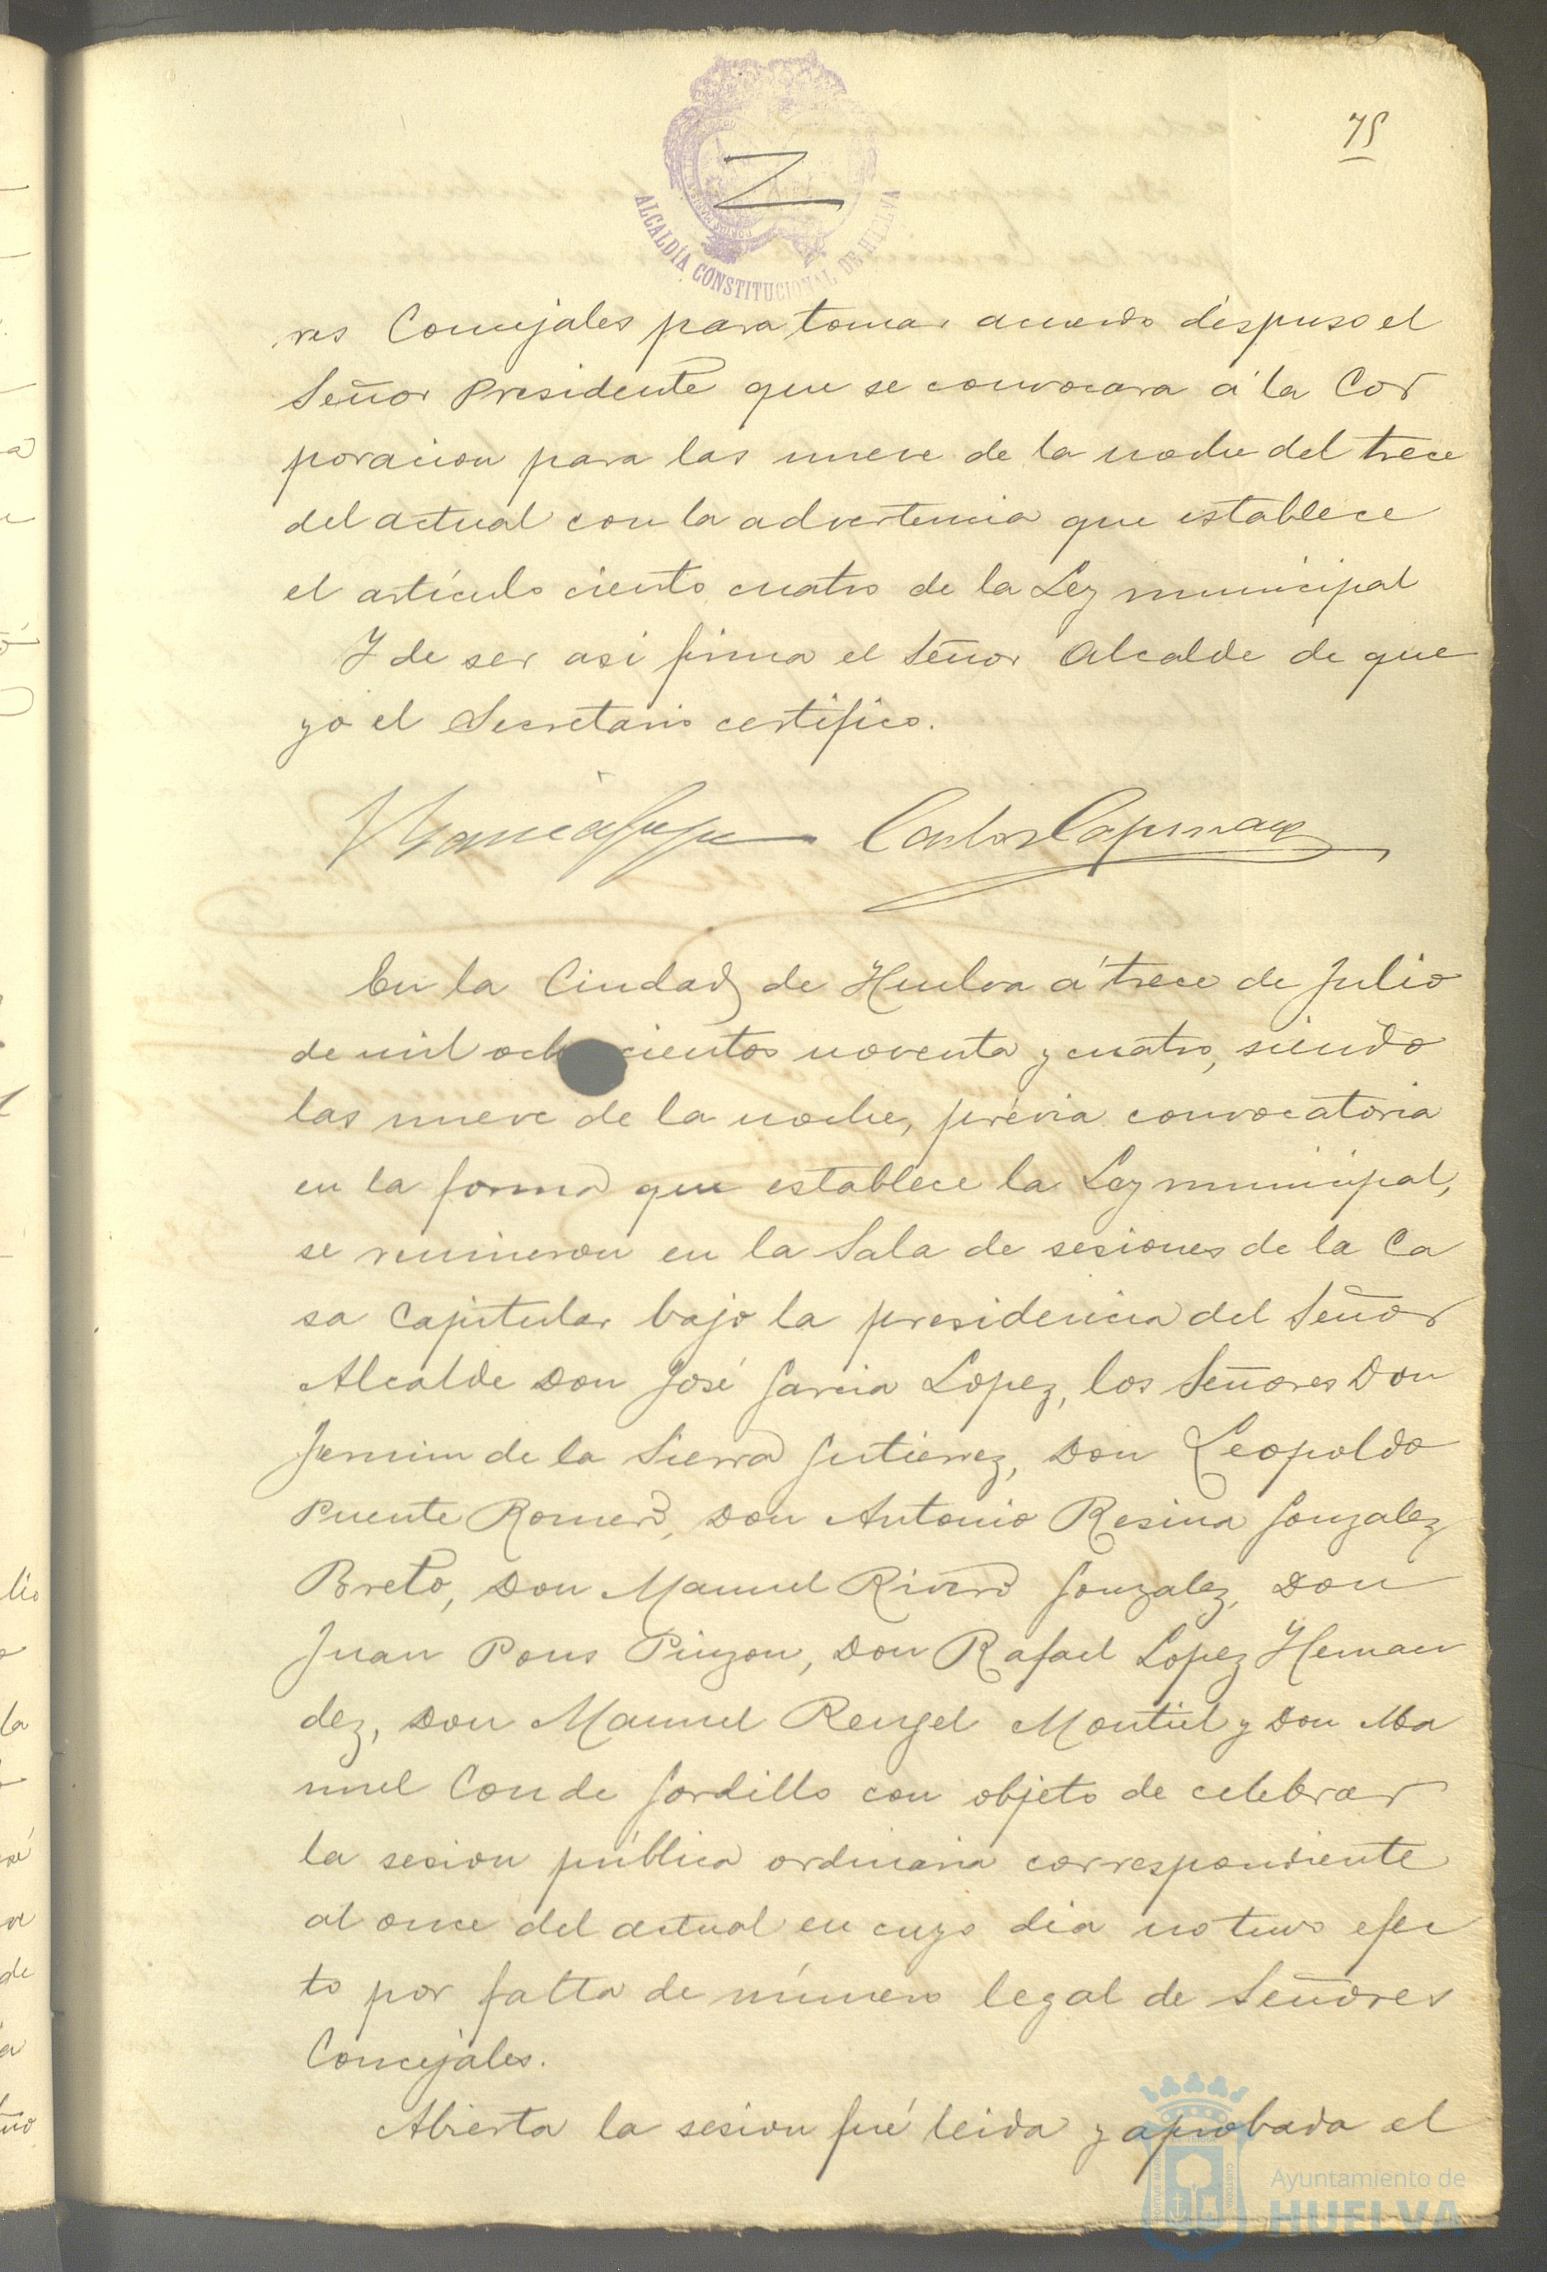 75
ALCALDÍA CONSTITUCIONAL DE HUELVA
res Concejales para tomar acuerdo dispuso el
Señor Presidente que se convocara á la Cor
poracion para las nueve de la noche del trece
del actual con la advertencia que establece
el artículo ciento cuatro de la Ley municipal
Y de ser asi firma el Señor Alcalde de que
yo el Secretario certifico.
Carlos
En la Ciudad de Huelva á trece de Julio
de mil ochocientos noventa y cuatro, siendo
las nueve de la noche, prévia convocatoria
en la forma que establece la Ley municipal,
se reunieron en la Sala de sesiones de la Ca
sa Capitular bajo la presidencia del Señor
Alcalde Don José Garcia Lopez, los Señores Don
Fermin de la Sierra Gutierrez, Don Leopoldo
Puente Romero, Don Antonio Resina Gonzalez
Breto, Don Manuel Rivero Gonzalez, Don
Juan Pons Pinzon, Don Rafael Lopez Hernan
dez, Don Manuel Rengel Montiel y Don Ma
nuel Conde Gordillo con objeto de celebrar
la sesion pública ordinaria correspondiente
al once del actual en cuyo dia no tuvo efec
to por falta de número legal de Señores
Concejales.
Abierta la sesion fué leida y aprobada el
Ayuntamiento de
HUELVA